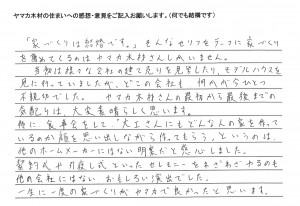 ヤマカ木材の住まいへの感想・意見をご記入お願いします。(何でも結構です)
「家づくりは結婚です。」そんなセリフをテーマに家づくり
を薦めてくるのはヤマカ木材さんしかいません。
当初は様々な会社の建て売りを見学したり、モデルハウスを
見に行っていましたが、どこの会社も何かが今ひとつ
不親切でした。ヤマカ木材さんの最初から最後までの
気配りは、大変素晴らしく思います。
特に食事会をして"大工さんにもどんな人の家を作って
いるのか顔を思い出しながら作ってもらう"、というのは、
他のホームメーカーにはない発案だと感心しました。
契約式や引渡し式といったセレモニーをわざわざやるのも
他の会社にはないおもしろい演出でした。
一生に一度の家づくりがヤマカで良かったと思います。